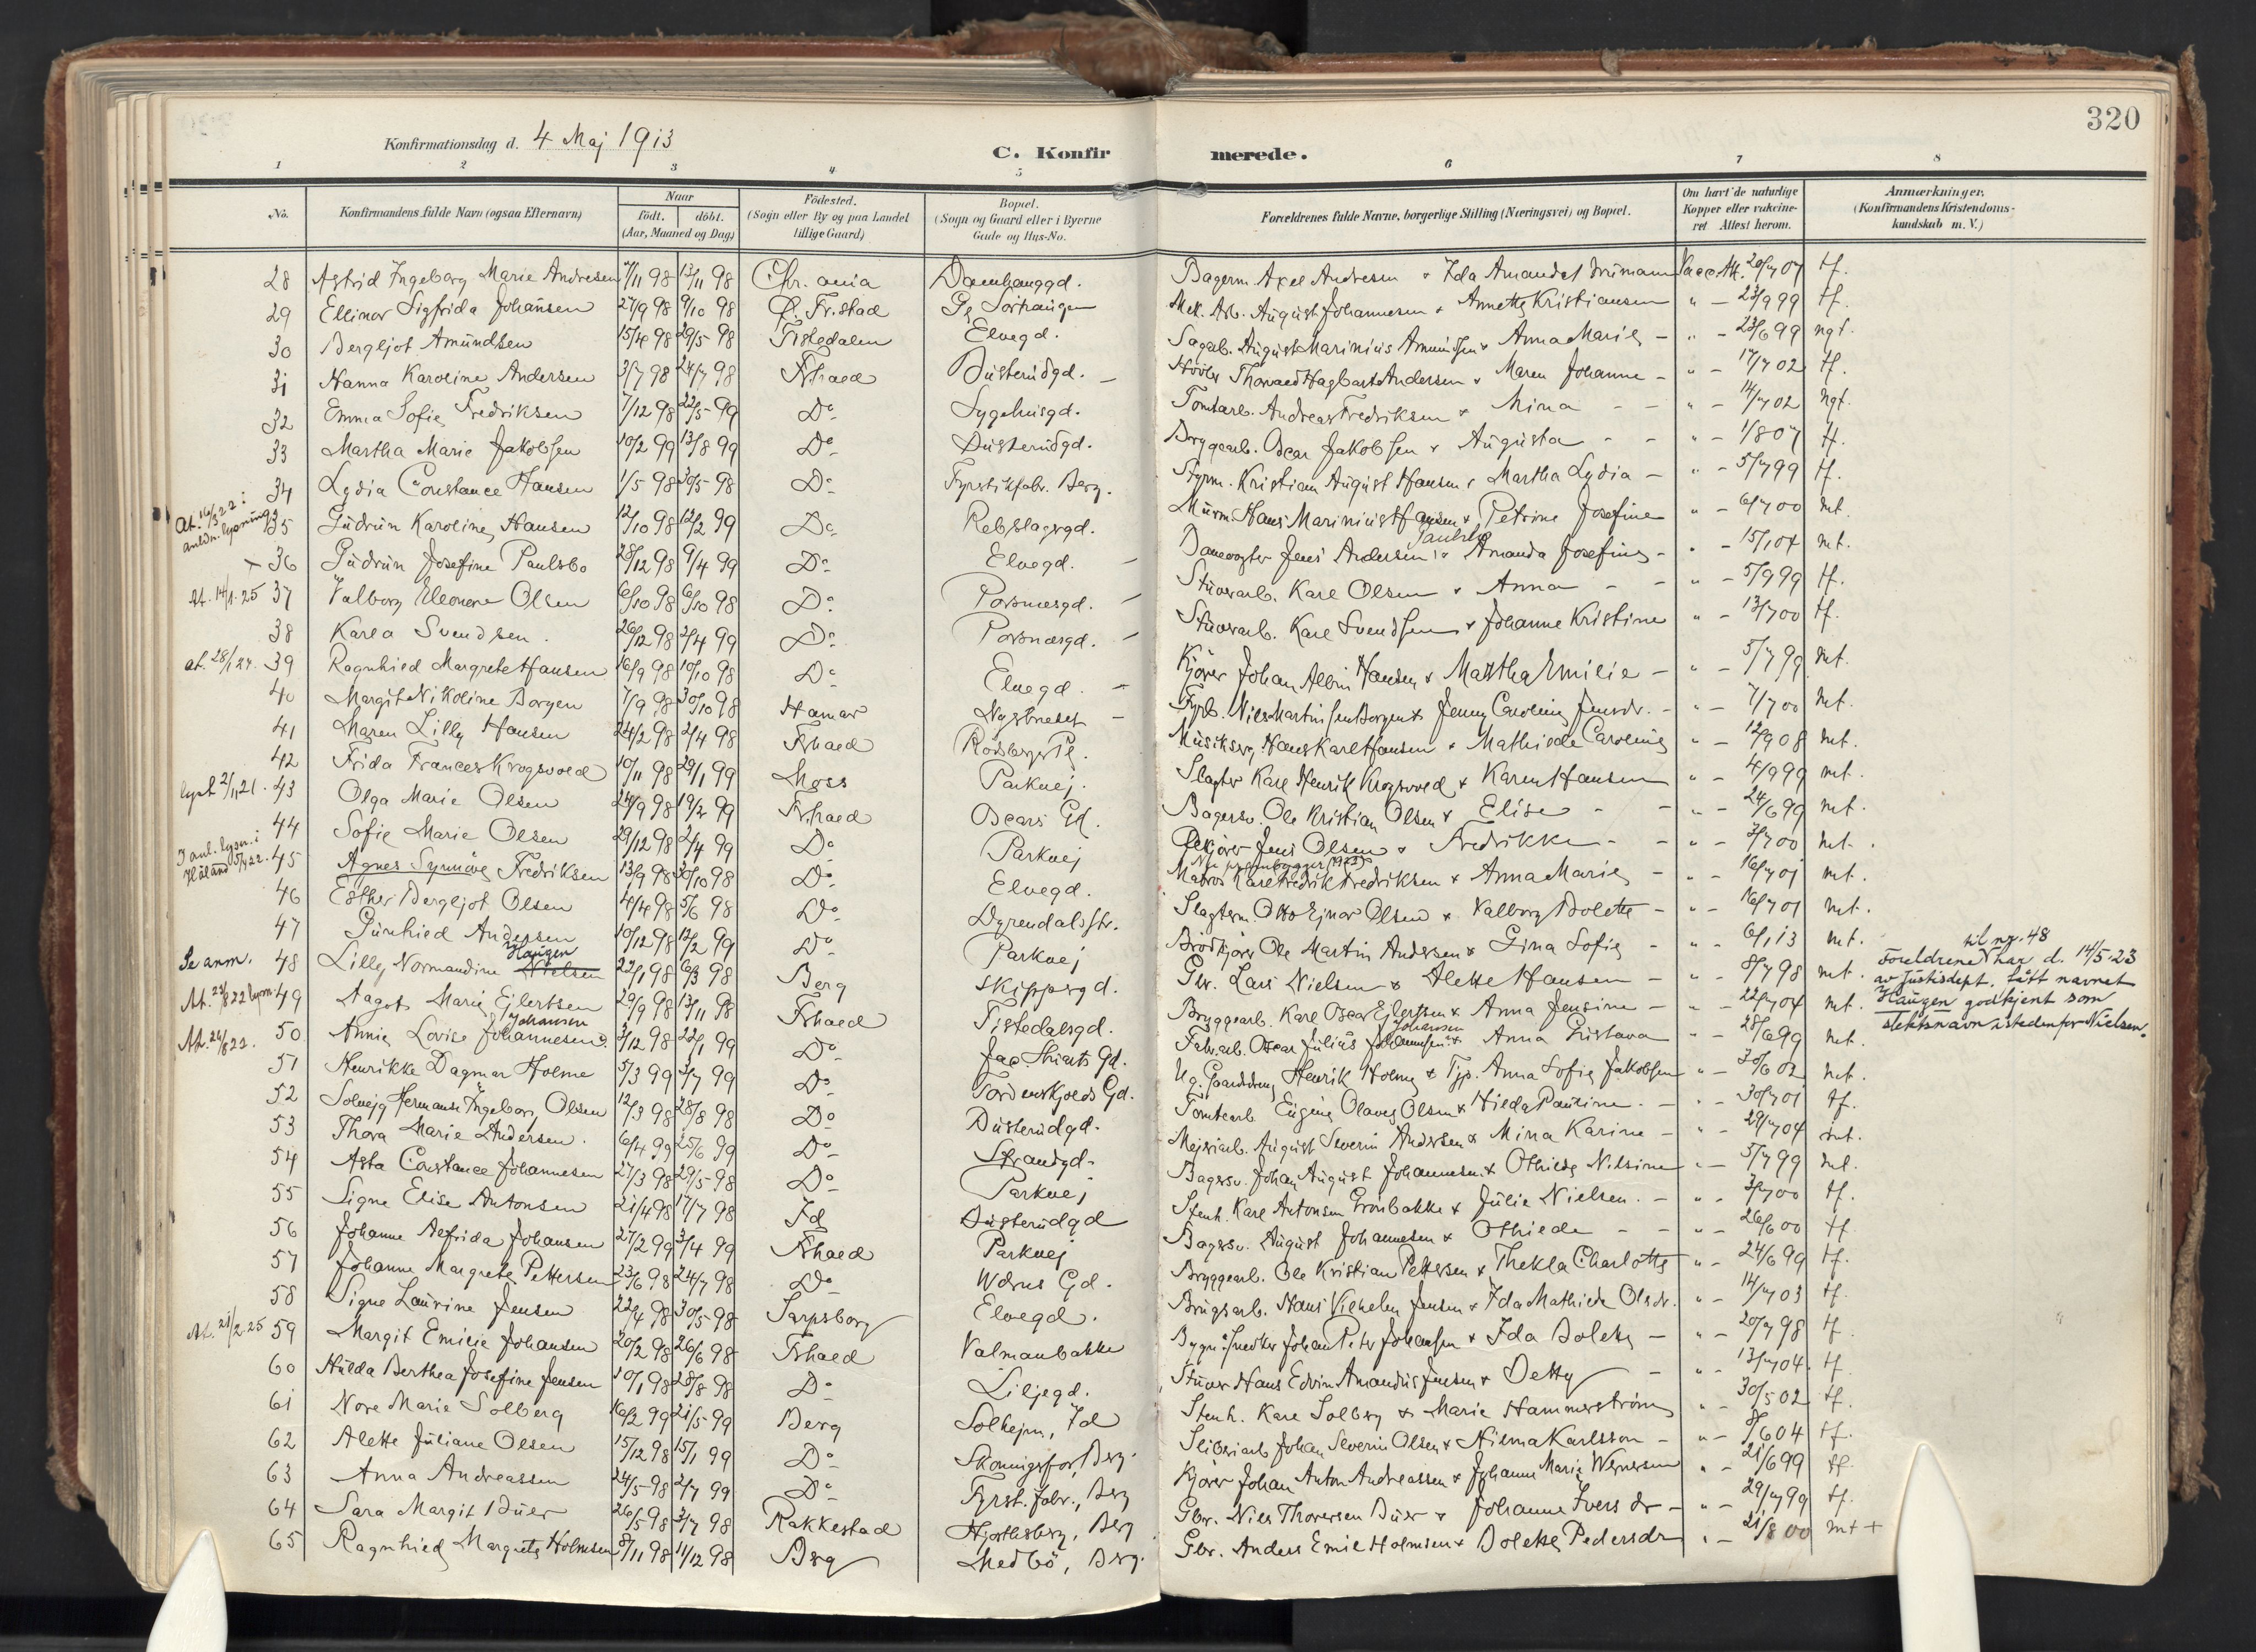 320
Konfirmationsdag d. 4 Maj 1913
C. Konfirmerede.
1 2 3 4 5 6 7 8
No. Konfirmandens fulde Navn (ogsaa Efternavn) Naar født. døbt. (Aar, Maaned og Dag) Fødested. (Sogn eller By og paa Landet tillige Gaard) Bopæl. (Sogn og Gaard eller i Byerne Gade og Hus-No. Forældrenes fulde Navne, borgerlige Stilling (Næringsvei) og Bopæl. Om havt de naturlige Kopper eller vakcineret Attest herom. Anmærkninger. (Konfirmandens Kristendomskundskab m. V.)
28 Astrid Ingeborg Marie Andresen 7/11 98 13/11 98 Chr.ania Damhauggd. Bagerm. Axel Andresen & Ida Amanda Vacc. Att. 20/7 07 tf.
29 Ellinor Sigfrida Johansen 27/9 98 9/10 98 Fr.stad Mek. Arb. August Johannesen & Annette Kristiansen " - 23/9 99 tf.
30 Bergljot Amundsen 15/4 98 29/5 98 Tistedalen Elvegd. Sagarb. August Marinius Amundsen & Anna Marie - " - 23/6 99 ngt.
31 Nanna Karoline Andersen 3/7 98 24/7 98 Fr.hald Busterudgd. - Thorvald Hagbart Andersen & Maren Johanne - " - 17/7 02 tf.
32 Emma Sofie Fredriksen 7/12 98 22/5 99 Do Sygehusgd. Tomtarb. Andreas Fredriksen & Mina - - " - 14/7 02 ngt.
33 Martha Marie Jakobsen 10/2 99 13/8 99 Do Busterudgd. Bryggearb. Oscar Jakobsen & Augusta - - " - 1/8 07 tf.
34 Lydia Constance Hansen 1/5 98 30/5 98 Do Fyrstikfabr. Berg. Styrm. Kristian August Hansen & Martha Lydia - " - 5/7 99 tf.
At. 16/3 22 i anledn. lysning 35 Gudrun Karoline Hansen 12/10 98 12/2 99 Do Rebslagergd. Murm. Hans Marinius Hansen & Petrine Josefine " - 6/7 00 mt.
+ 36 Gudrun Josefine Paulsbo 28/12 98 9/4 99 Do Elvegd. - Damvogter Jens Andersen Paulsbo & Amanda Josefine - " - 15/1 04 mt.
At. 14/1-25 37 Valborg Eleonore Olsen 6/10 98 6/10 98 Do Porsnæsgd. - Stuerarb. Karl Olsen & Anna - - " - 5/9 99 tf.
38 Karla Svendsen. 26/12 98 2/4 99 Do Porsnæsgd. - Stuerarb. Karl Svendsen & Johanne Kristine " - 13/7 00 tf.
At. 28/1 24. 39 Ragnhild Margrete Hansen 16/9 98 10/10 98 Do Elvegd. - Kjører Johan Albin Hansen & Martha Emilie - " - 5/7 99 mt.
40 Margit Nikoline Borgen 7/9 98 30/10 98 Hamar - Fyrb. Nils Martinsen Borgen & Jenny Caroline Jensdr. - " - 7/7 00 mt.
41 Maren Lilly Hansen 24/2 98 2/4 98 Fr.hald Rødsberg Pl. Musikserg. Hans Karl Hansen & Mathilde Caroline " - 12/9 08 mt.
42 Frida Frances Krogsvold 10/11 98 29/1 99 Moss Parkvej. Slagter Karl Henrik Krogsvold & Karen Hansen " - 4/9 99 mt.
lyst 2/11 21. 43 Olga Marie Olsen 24/9 98 19/2 99 Fr.hald Oscars Gd. Bagersv. Ole Kristian Olsen & Elise - - " - 24/6 99 mt.
44 Sofie Marie Olsen 29/12 98 2/4 99 Do Parkvej Jens Olsen & Fredrikke - - " - 3/7 00 mt.
I anl. lysn. i Høland 5/4 22. 45 Agnes Synnøve Fredriksen 13/9 98 30/10 98 Do Elvegd. Matros Karl Fredrik Fredriksen & Anna Marie - " - 16/7 01 mt.
46 Esther Bergljot Olsen 4/4 98 5/6 98 Do Dyrendalsstr. Slagterm. Otto Ejnar Olsen & Valborg Bolette - " - 16/7 01 mt.
47 Gunhild Andersen 10/12 98 12/2 99 Do Parkvej Brødkjører Ole Martin Andersen & Gina Sofie - " - 6/1 13 mt.
Se anm. 48 Lilly Normandine Nielsen Haugen 22/1 98 6/3 98 Berg Skippergd. Gbr. Lars Nielsen & Alette Hansen - " - 8/7 98 mt.
til nr. 48
Foreldrene har d. 14/5-23
av Justisdept. fått navnet
Haugen godkjent som
slektsnavn istedenfor Nielsen.
At. 23/8 22 lysn. 49 Aagot Marie Ejlertsen 29/9 98 13/11 98 Fr.hald Tistedalsgd. Bryggearb. Karl Oscar Ejlertsen & Anna Jensine - " - 22/7 04 mt.
At. 24/8 22. 50 Annie Lovise Johannesen Johansen 3/12 98 22/1 99 Do Jac. Gd. Fabr.arb. Oscar Julius Johannesen Johansen & Anna Gustava - 28/6 99 mt.
51 Henrikke Dagmar Holme 5/3 99 3/7 99 Do Tordenskjolds Gd. Ug. Gaarddreng Henrik Holme & Tjp. Anna Sofie Jakobsen " - 30/6 02 mt.
52 Solvejg Hermanse Ingeborg Olsen 12/3 98 28/8 98 Do Busterudgd. Tomtearb. Eugene Olaves Olsen & Hilda Pauline. - " - 30/7 01 tf.
53 Thora Marie Andersen. 6/4 99 25/6 99 Do Strandgd. Mejeriarb. August Severin Andersen & Mina Karine - " - 29/7 04 mt.
54 Asta Constance Johannesen 27/3 98 29/5 98 Do Parkvej Bagersv. Johan August Johannesen & Othilde Nilsine " - 5/7 99 mt.
55 Signe Elise Antonsen 21/4 98 17/7 98 Id Busterudgd Stenh. Karl Antonsen Grønbakke & Julie Nielsen. - " - 3/7 00 tf.
56 Johanne Alfrida Johansen 27/2 99 3/4 99 Fr.hald Parkvej Bagersv. August Johannesen & Othilde - - " - 26/6 00 tf
57 Johanne Margrete Pettersen 23/6 98 24/7 98 Do Gd. Bryggearb. Ole Kristian Pettersen & Thekla Charlotte " - 24/6 99 tf.
58 Signe Laurine Jensen 22/4 98 30/5 98 Sarpsborg Elvegd. Brugsarb. Hans Vilhelm Jensen & Ida Mathilde Olsdr. " - 14/7 03 tf.
At. 21/2-25 59 Margit Emilie Johansen 20/2 98 26/6 98 Fr.hald Valmanbakke Johan Peter Johansen & Ida Bolette - " - 20/7 98 tf.
60 Hulda Berthea Josefine Jensen 10/1 98 28/8 98 Do Liljegd. Stuer Hans Edvin Amandus Jensen & Betty - " - 13/7 04. tf.
61 Nore Marie Solberg 16/2 99 21/5 99 Berg Solhejm, Id Stenh. Karl Solberg & Marie Hammerstrøm " - 30/5 02 tf.
62 Alette Juliane Olsen 15/12 98 15/1 99 Do Skonningsfoss, Berg. Sliberiarb Johan Severin Olsen & Hilma Karlsson - " - 8/6 04 tf.
63 Anna Andreassen 24/5 98 2/7 99 Do Fyrst. fabr., Berg Kjører Johan Anton Andreassen & Johanne Marie Wernersen " - 21/6 99 tf.
64 Sara Margit Buer 26/5 98 3/7 98 Rakkestad Hjorthsberg, Berg Gbr. Nils Thoresen Buer & Johanne Iversdr - " - 29/7 99 tf.
65 Ragnhild Margrete Holmsen 8/11 98 11/12 98 Berg Medbø, Berg. Gbr. Anders Emil Holmsen & Bolette Pedersdr " - 21/8 00 mt +